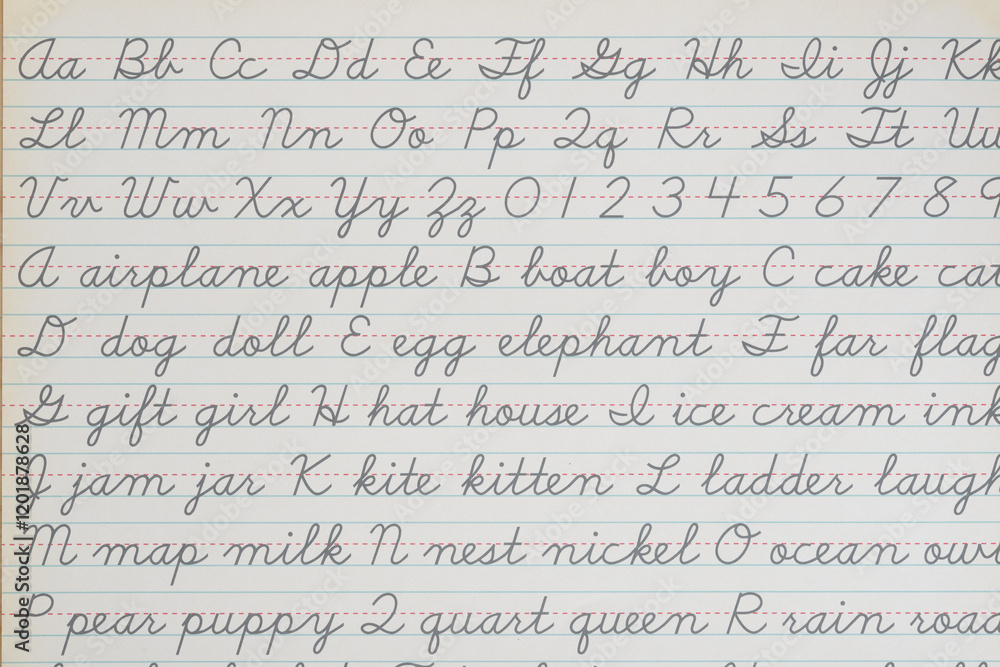 Aa Bb Cc Dd Ee Ff Gg Hh Ii Jj Kk
Ll Mm Nn Oo Pp Qq Rr Ss Tt Uu
Vv Ww Xx Yy Zz 0 1 2 3 4 5 6 7 8 9
A airplane apple B boat boy C cake cat
D dog doll E egg elephant F far flag
G gift girl H hat house I ice cream ink
J jam jar K kite kitten L ladder laugh
M map milk N nest nickel O ocean
P pear puppy Q quart queen R rain road
Adobe Stock | #1201878628